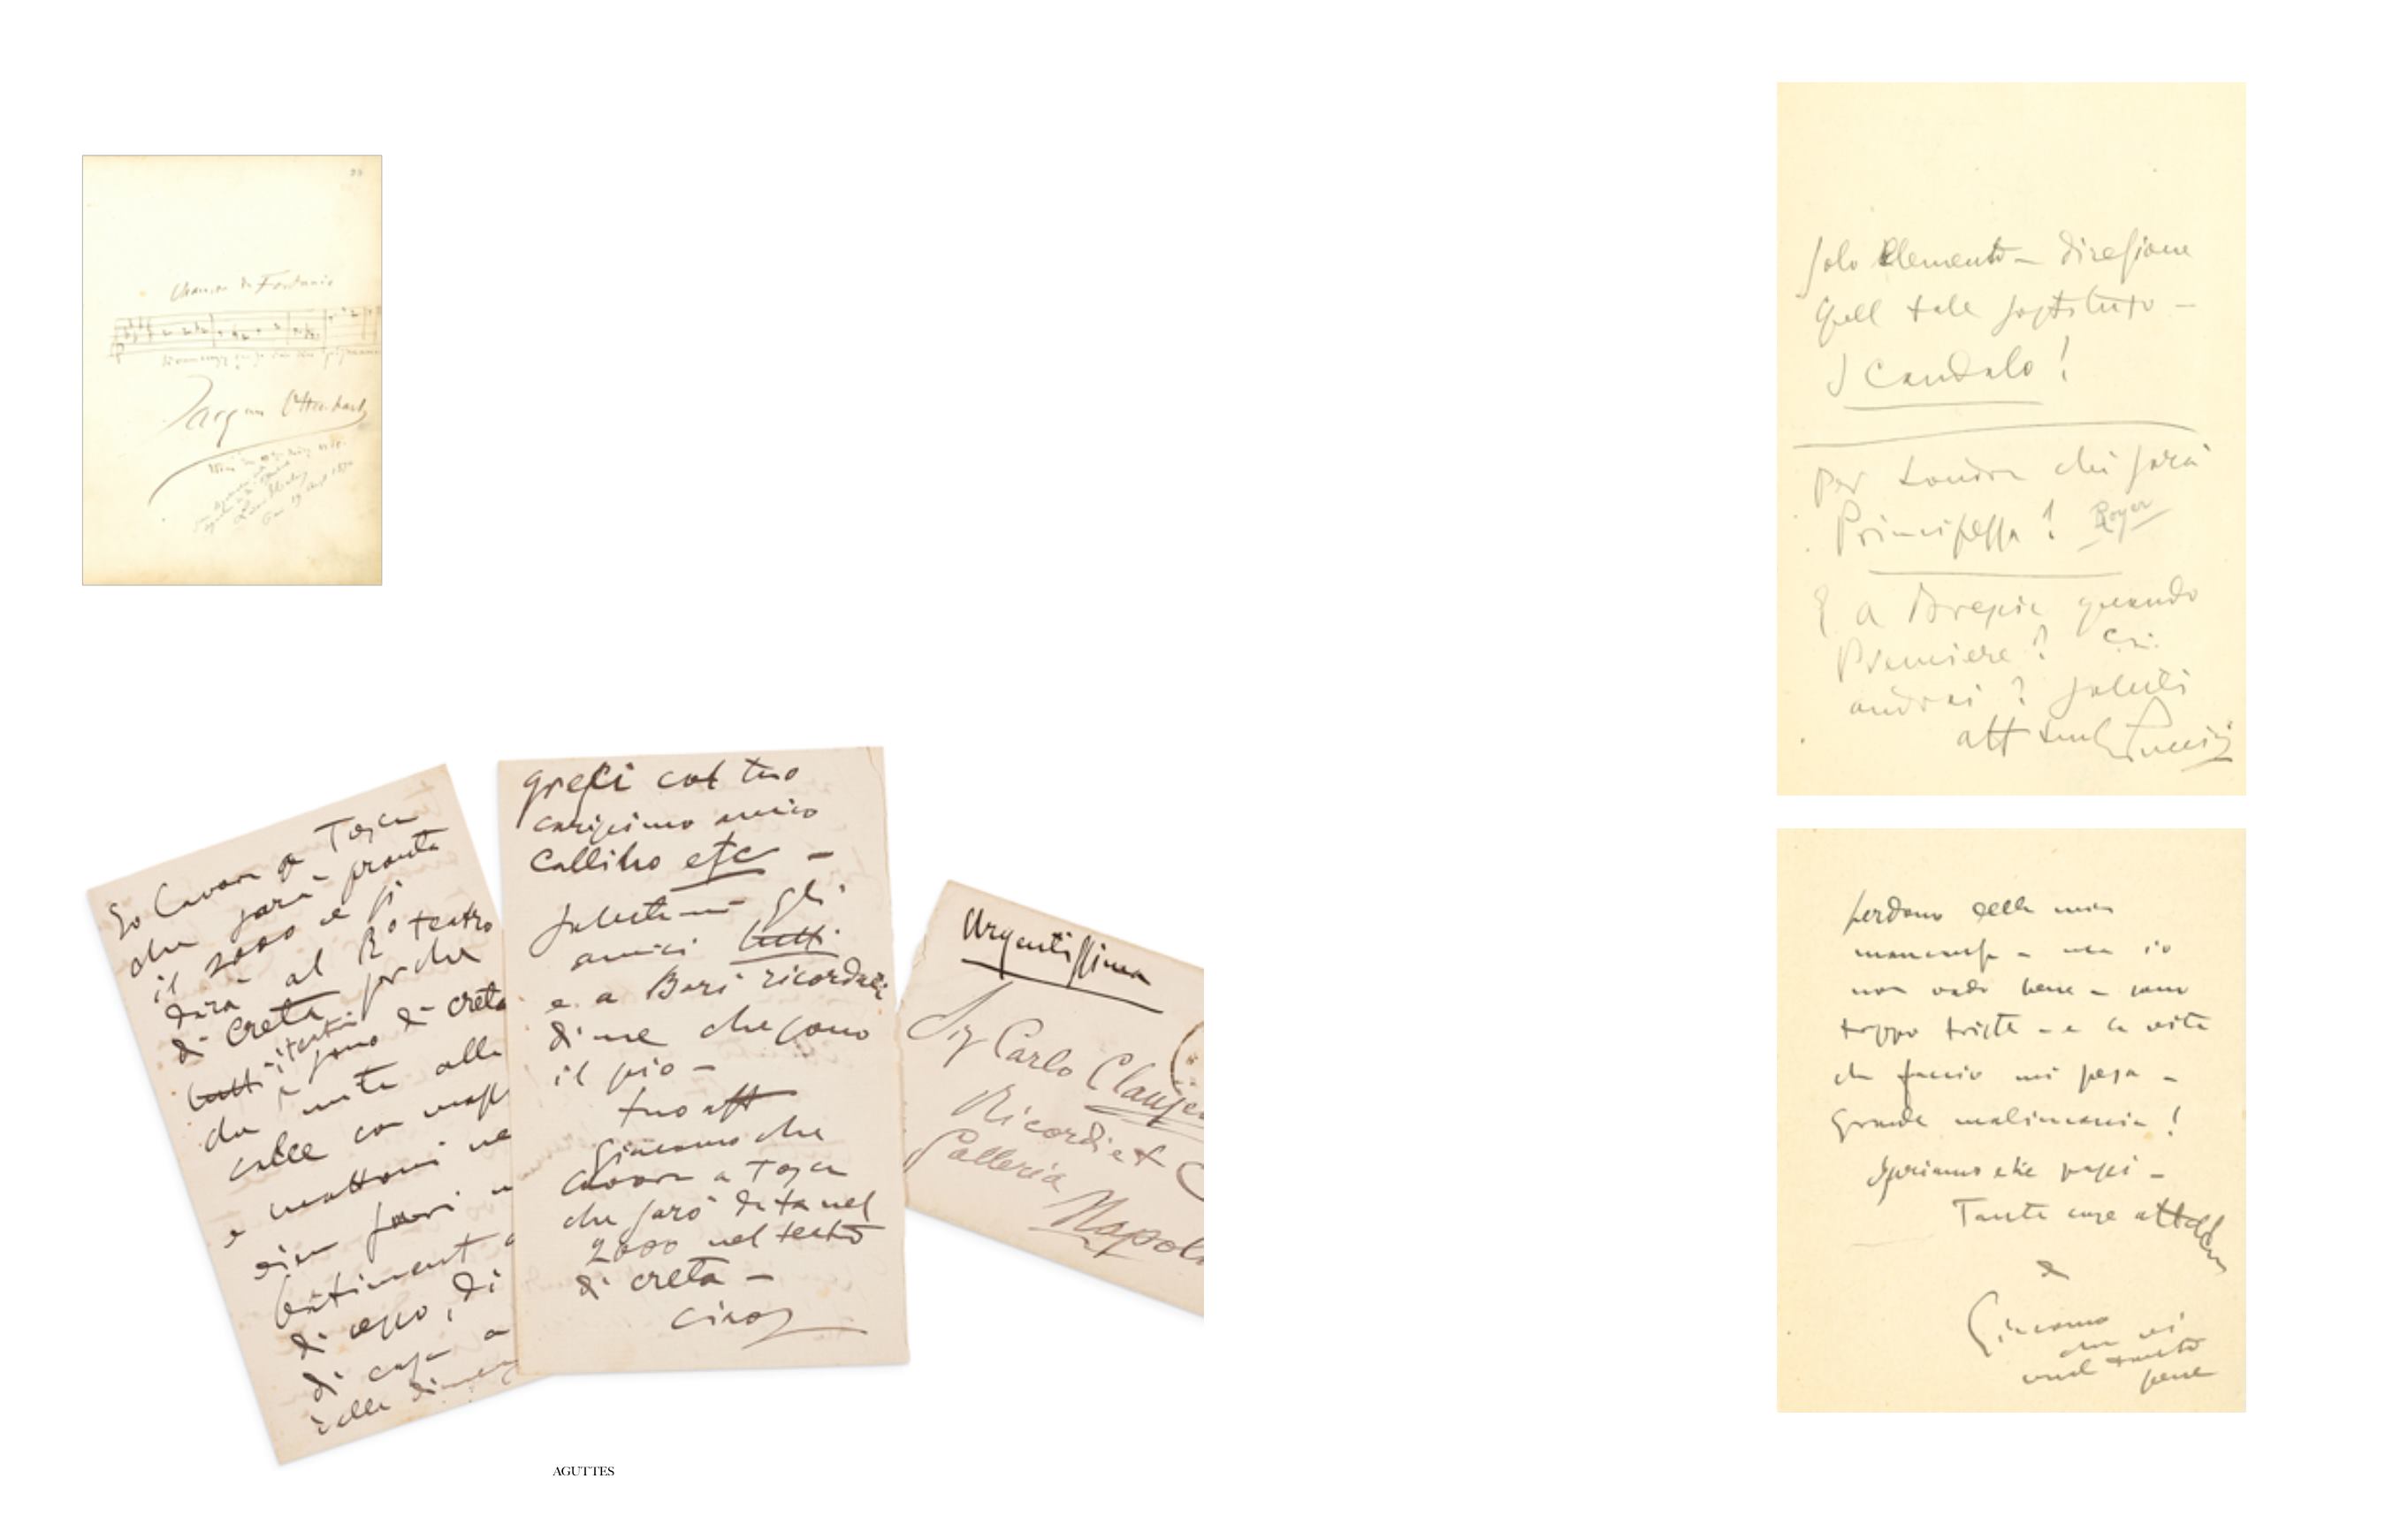 Chanson de Fortunio
Jacques Offenbach
Io lavoro a Tosca
che sarà pronta
il 2000 e si
darà al R° teatro
di creta perche
tutti i teatri
sono di creta
da unita alla
calce con
e mattoni
sian fuori
bastimenti
di
di casa a
greci col tuo
carissimo amico
Callisto etc –
Salutami gli
amici tutti
e a Bari ricordati
di me che sono
il pio –
tuo aff
Giacomo che
lavora a Tosca
che sarà data nel
2000 nel teatro
di creta –
ciao
Urgentissima
Sig Carlo Clausetti
Ricordi et C
Galleria
Napoli
AGUTTES
Solo Clemente – direzione
Quel tale sostituto –
Scandalo!
Per Londra chi sarà
Principessa?
E a Brescia quando
Premiere? Ci
andrai? saluti
aff tuo GPuccini
perdono della mia
mancanza – ma io
non vado bene – sono
troppo triste – e la vita
che faccio mi pesa –
Grande malinconia!
Speriamo che passi –
Tante cose
di
Giacomo
che vi
vuol tanto
bene